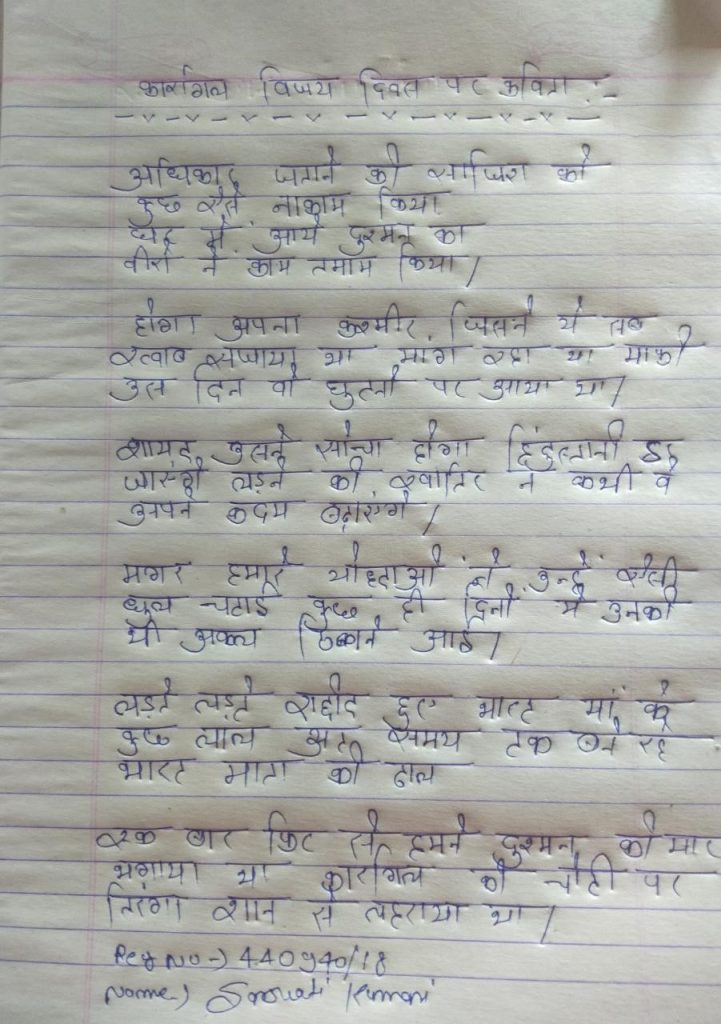 कारगिल विजय दिवस पर कविता :-
अधिकार जताने की साजिश को
कुछ ऐसे नाकाम किया
हद में आये दुश्मन का
वीरों ने काम तमाम किया।
होगा अपना कश्मीर, जिसने ये सब
ख्वाब सजाया था मांग रहा था माफी
उस दिन वो घुटनों पर आया था।
शायद उसने सोचा होगा हिंदुस्तानी डर
जाएंगे लड़ने की खातिर न कभी वे
अपने कदम बढ़ाएंगे।
मगर हमारे योद्धाओं ने उन्हें ऐसी
धूल चटाई कुछ ही दिनों में उनकी
भी अक्ल ठिकाने आई।
लड़ते लड़ते शहीद हुए भारत माँ के
कुछ लाल अंत समय तक बने रहे
भारत माता की ढाल
एक बार फिर से हमने दुश्मन को मार
भगाया था कारगिल की चोटी पर
तिरंगा शान से लहराया था।
Reg No-) 440940/18
Name-) Kumari